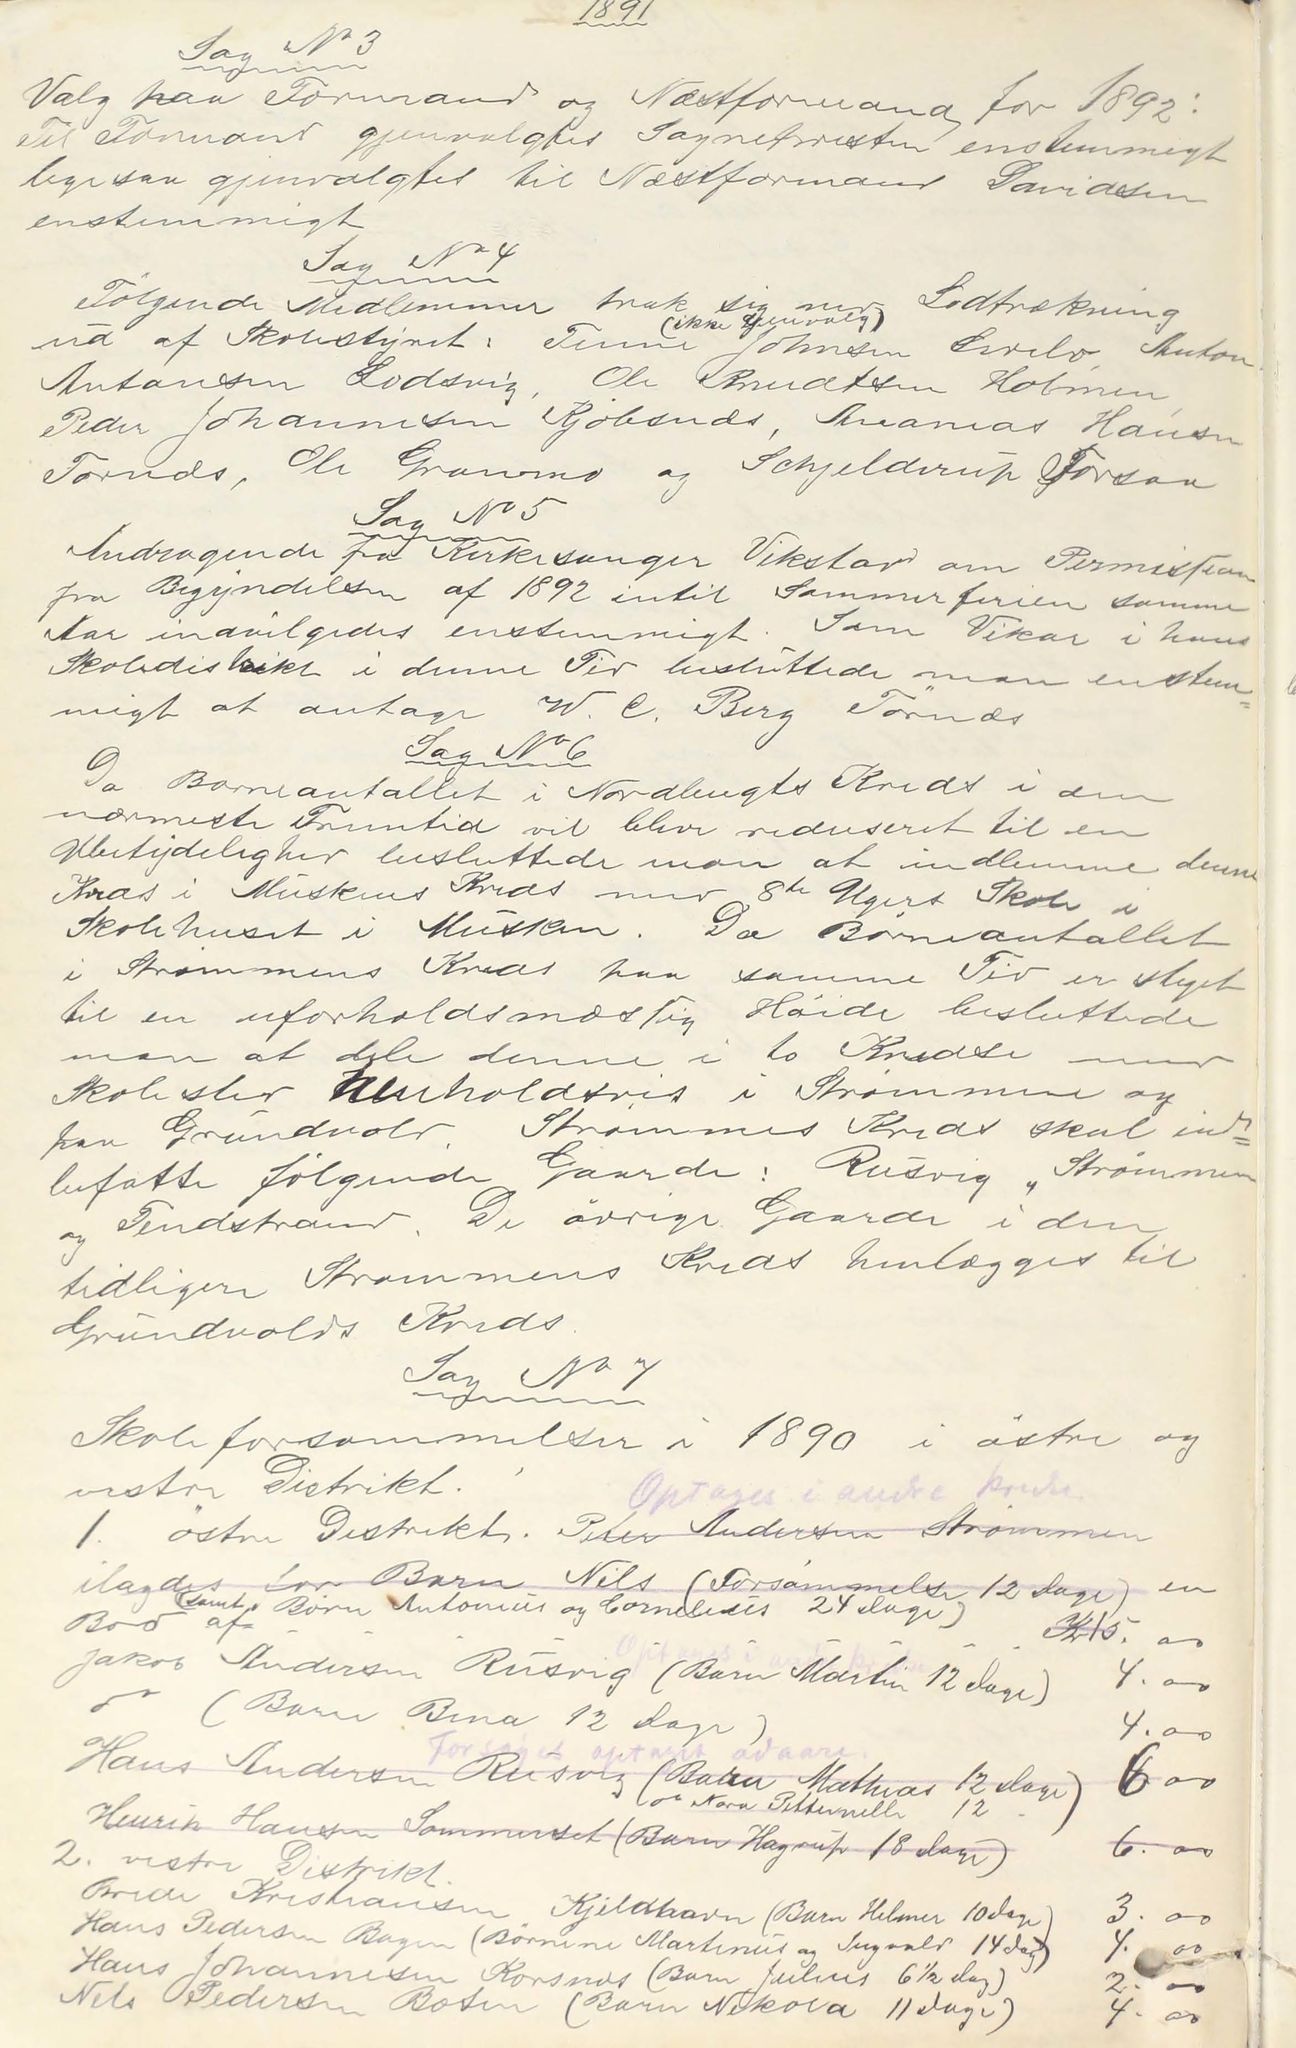 1891
Sag No 3
Valg paa Formand og Næstformand for 1892:
Til Formand gjenvalgtes Sogne enstemmigt
ligesaa gjenvalgtes til Næstformand Davidsen
enstemmigt
Sag No 4
Følgende Medlemmer trak sig ved Lodtrækning
(ikke Gjenvalg)
ud af Skolestyret: Johnsen Anton
Antonsen Lodsvig, Ole Knudtsen Holmen,
Peder Johannesen Kjöbsnæs, Ananias Hansen
Tørnæs, Ole Granmo og Schjelderup Forsaa
Sag No 5
Andragende fra Kirkesanger Vikstad om Permission
fra Begyndelsen af 1892 intil Sommerferien samme
Aar indvilgedes enstemmigt. Som Vikar i hans
Skoledistrikt i denne Tid besluttede man enstem=
migt at antage W. C. Berg Törnæs
Sag No 6
Da Børneantallet i Nordbugts Kreds i den
nærmeste Fremtid vil blive reduseret til en
Ubetydelighed besluttede man at indlemme denne
Kreds i Muskens Kreds med 8te Ugers Skole i
Skolehuset i Musken. Da Börneantallet
i Strømmens Kreds paa samme Tid er steget
til en uforholdsmæssig Höide besluttede
man at dele denne i to Kredse med
Skolested henholdsvis i Strømmen og
paa Grundvold. Strømmes Kreds skal ind=
befatte følgende Gaarde: Rusvig, Strømmen
og Tendstrand. De øvrige Gaarde i den
tidligere Strømmens Kreds henlægges til
Grundvolds Kreds.
Sag No 7
Skoleforsømmelser i 1890 i östre og
vestre Distrikt.
Optages i andre kredse
1. östre Distrikt. Peder Andersen Strømmen
ilagdes for Barn Nils (Forsømmelse 12 Dage) en
(samt Børn Antonius og Cornelius 24 dage)
Bod af Kr 15. 00
Jakob Andersen Rusvig (Barn Martin 12 Dage) 4. 00
do (Barn Bina 12 Dage) 4. 00
Forsøges optages
Hans Andersen Rusvig (Barn Mathias 12 Dage) 6 00
do Nora Petternelle 12
Henrik Hansen Sommerset (Barn Hagrup 18 Dage) 6. 00
2. vestre Distrikt.
Brede Kristiansen Kjeldhavn (Barn Helmer 10 Dage) 3. 00
Hans Pedersen Bogen (Børnene Martinus og Ingvald 14 Dage) 4. 00
Hans Johannesen Korsnæs (Barn Julius 6 1/2 Dag) 2. 00
Nils Pedersen Boten (Barn Nikola 11 Dage) 4. 00